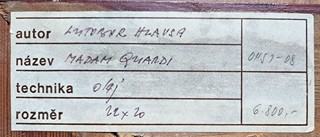 autor LUTOBOR HLAVSA
název MADAM GUARDI
technika olej
rozměr 22x20 6.800,-